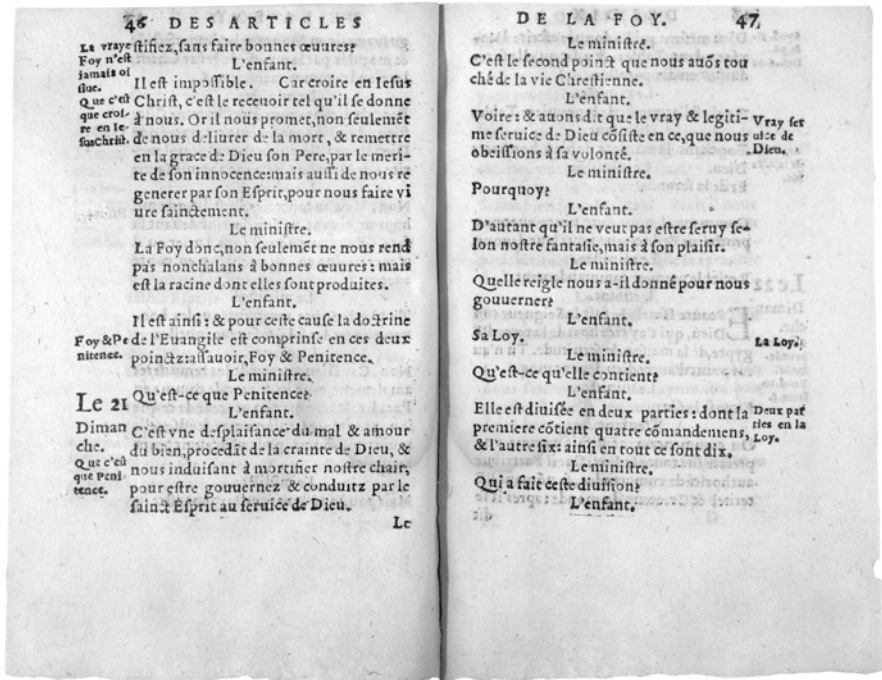 46 DES ARTICLES
La vraye
Foy n'est
iamais oi
siue.
Que c'est
que croi-
re en Ie-
sus Christ.
stifiez, sans faire bonnes œuures?
L'enfant.
Il est impossible. Car croire en Iesus
Christ, c'est le receuoir tel qu'il se donne
à nous. Or il nous promet, non seulemẽt
de nous deliurer de la mort, & remettre
en la grace de Dieu son Pere, par le meri-
te de son innocence: mais aussi de nous re
generer par son Esprit, pour nous faire vi
ure sainctement.
Le ministre.
La Foy donc, non seulemẽt ne nous rend
pas nonchalans à bonnes œuures: mais
est la racine dont elles sont produites.
L'enfant.
Il est ainsi: & pour ceste cause la doctrine
Foy & Pe
nitence.
de l'Euangile est comprinse en ces deux
poinctz: assauoir, Foy & Penitence.
Le ministre.
Qu'est-ce que Penitence?
L'enfant.
Le 21
Diman
che.
Que c'est
que Peni
tence.
C'est vne desplaisance du mal & amour
du bien, procedãt de la crainte de Dieu, &
nous induisant à mortifier nostre chair,
pour estre gouuernez & conduitz par le
sainct Esprit au seruice de Dieu.
Le
DE LA FOY. 47
Le ministre.
C'est le second poinct que nous auõs tou
ché de la vie Chrestienne.
L'enfant.
Voire: & auons dit que le vray & legiti-
me seruice de Dieu cõsiste en ce, que nous
obeissions à sa volonté.
Vray ser
uice de
Dieu.
Le ministre.
Pourquoy?
L'enfant.
D'autant qu'il ne veut pas estre seruy se-
lon nostre fantasie, mais à son plaisir.
Le ministre.
Quelle reigle nous a-il donné pour nous
gouuerner?
L'enfant.
Sa Loy.
La Loy.
Le ministre.
Qu'est-ce qu'elle contient?
L'enfant.
Elle est diuisée en deux parties: dont la
premiere cõtient quatre cõmandemens,
& l'autre six: ainsi en tout ce sont dix.
Deux par
ties en la
Loy.
Le ministre.
Qui a fait ceste diuision?
L'enfant.